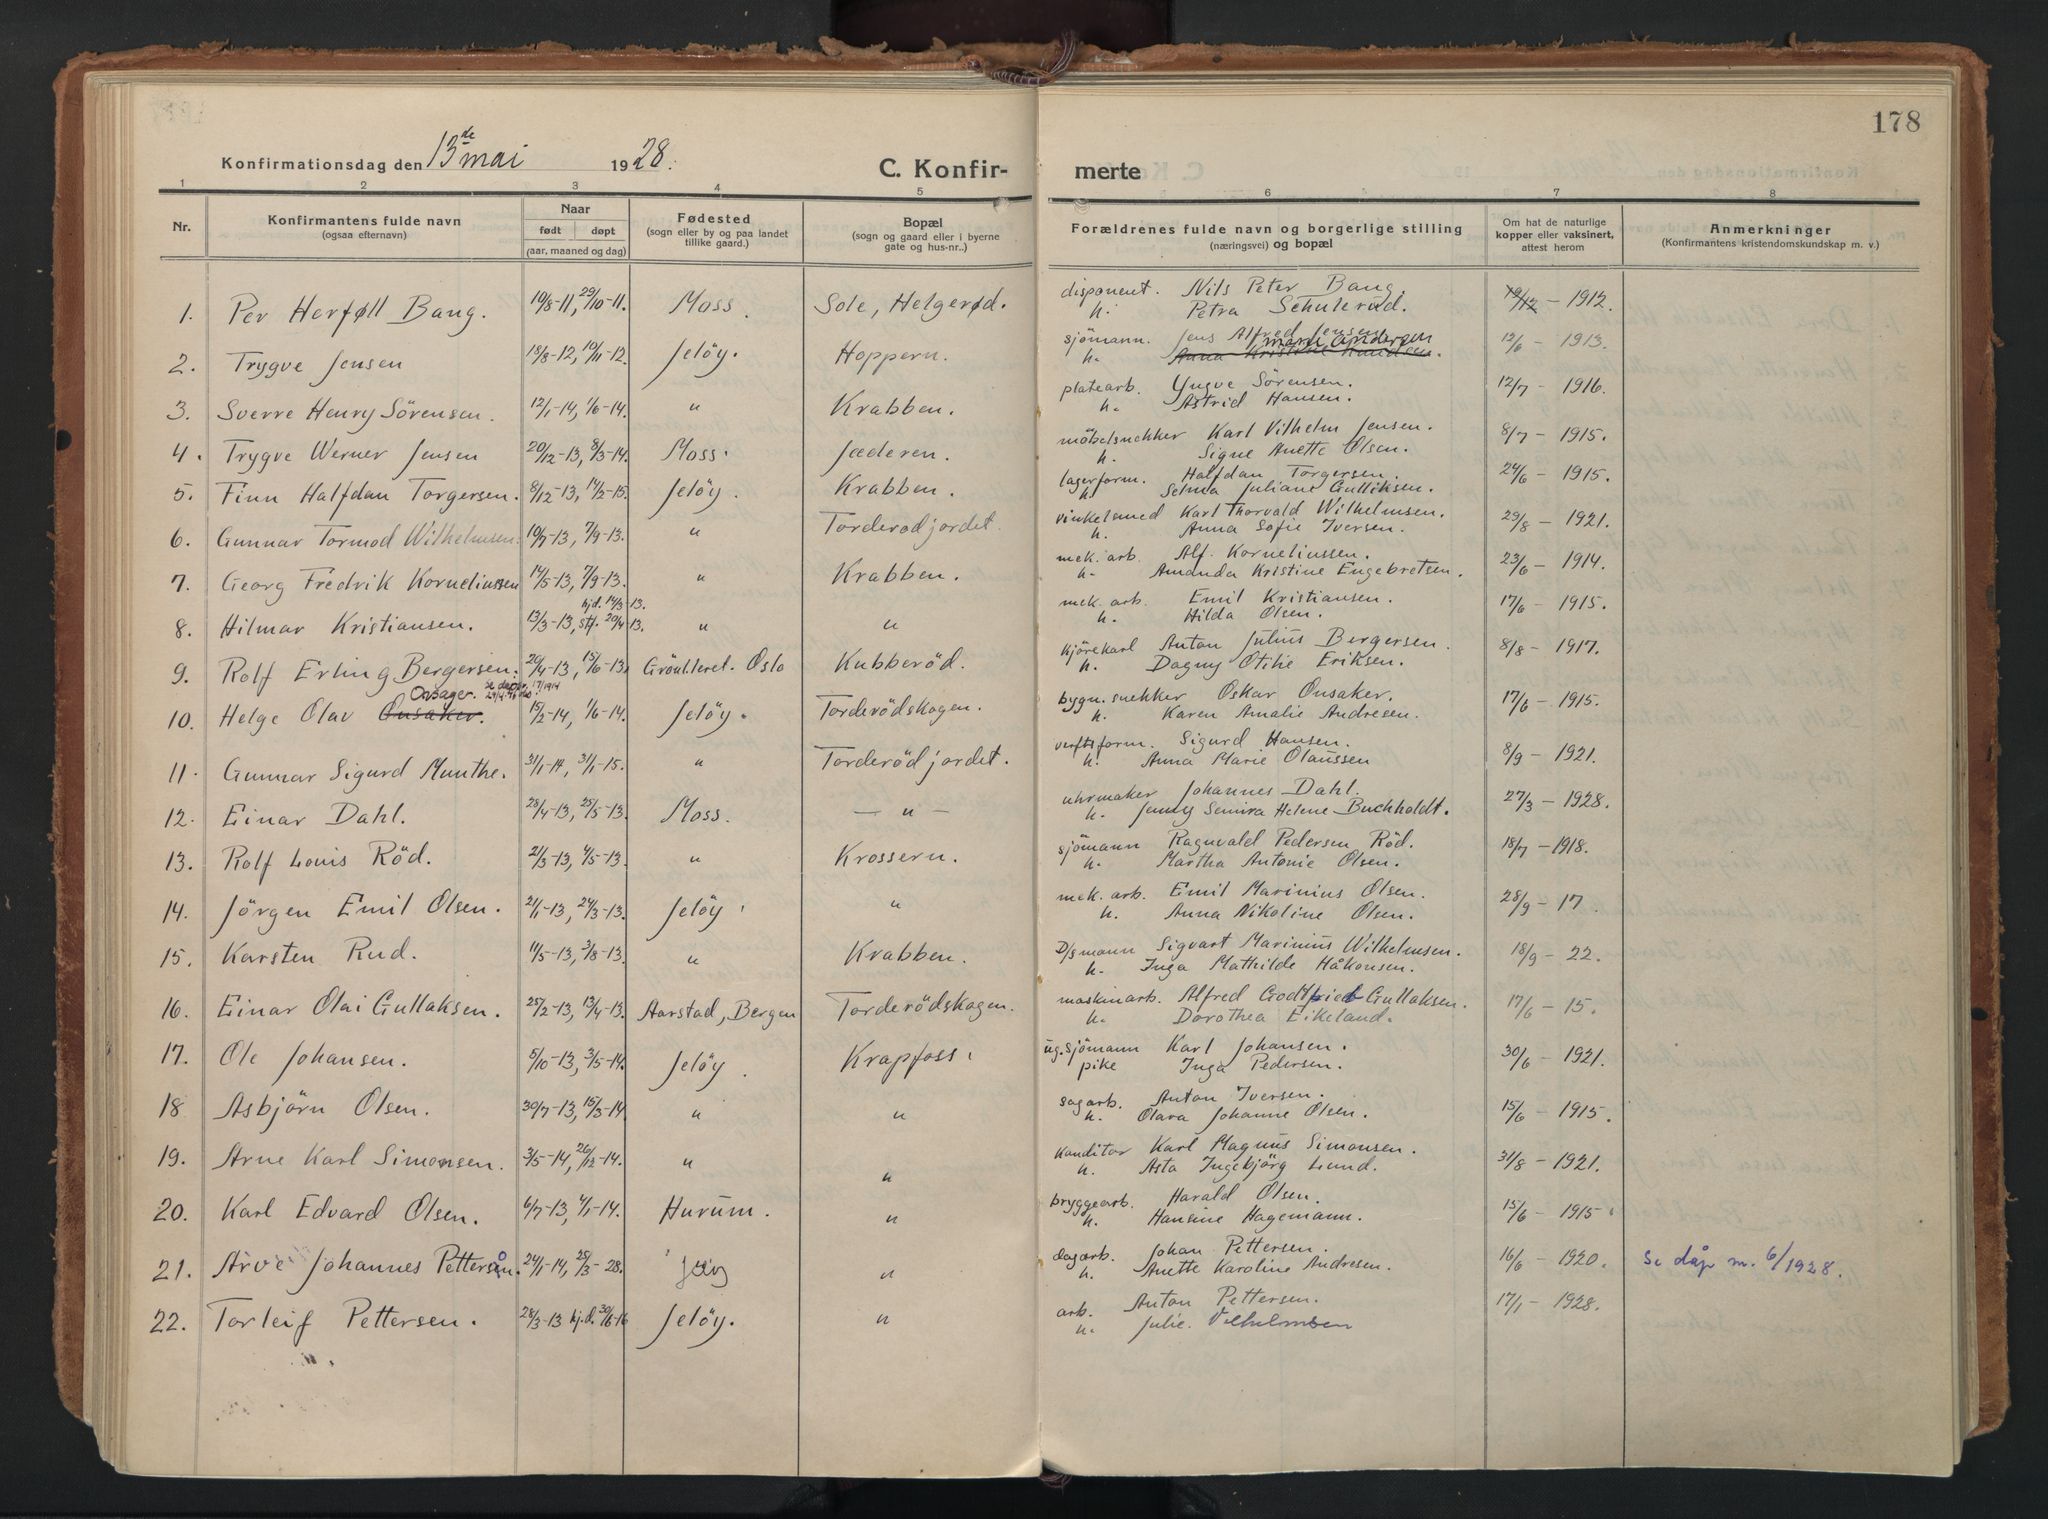 178
Konfirmationsdag den 13de mai 1928. C. Konfirmerte
1 2 3 4 5 6 7 8
Nr. Konfirmantens fulde navn (ogsaa efternavn) Naar født døpt (aar, maaned og dag) Fødested (sogn eller by og paa landet tillike gaard.) Bopæl (sogn og gaard eller i byerne gate og hus-nr..) Forældrenes fulde navn og borgerlige stilling (næringsvei) og bopæl Om hat de naturlige kopper eller vaksinert, attest herom Anmerkninger (Konfirmantens kristendomskundskap m. v.)
1. Per Herføll Bang. 19/8-11, 29/10-11. Moss. Sole, Helgerød. disponent. Nils Peter Bang. 19/12 - 1912.
h. Petra Schulerud.
2. Trygve Jensen 18/8-12, 10/11-12. Jeløy. Hoppern. sjömann. Jens Alfred Jensen 12/6 - 1913.
h. Anna Kristine Knudsen. Marie Andersen
3. Sverre Henry Sörensen. 12/1-14, 1/6-14. " Krabben. platearb. Yngve Sörensen. 12/7 - 1916.
h. Astrid Hansen.
4. Trygve Werner Jensen 20/12-13, 8/3-14. Moss. Jæderen. möbelsnekker Karl Vilhelm Jensen. 8/7 - 1915.
h. Signe Anette Olsen.
5. Finn Halfdan Torgersen. 8/12-13, 14/2-15. Jelöy. Krabben. lagerform. Halfdan Torgersen. 24/6 - 1915.
h. Selma Juliane Gulliksen.
6. Gunnar Tormod Wilhelmsen. 10/7-13, 7/9-13. " Torderodjordet. vinkelsmed Karl Thorvald Wilhelmsen. 29/8 - 1921.
h. Anna Sofie Iversen.
7. Georg Fredrik Korneliussen 14/5-13, 7/9-13. " Krabben. mek. arb. Alf. Korneliussen. 23/6 - 1914.
h. Amanda Kristine Engebretsen.
8. Hilmar Kristiansen. 13/3-13, hjd. 14/3-13. stf. 20/4-13. " " mek. arb. Emil Kristiansen. 17/6 - 1915.
h. Hilda Olsen.
9. Rolf Erling Bergersen. 20/4-13, 15/6-13. Grönlleret. Oslo Kubberöd. kjörekarl Anton Julius Bergersen. 8/8 - 1917.
h. Dagny Otilie Eriksen.
10. Helge Olav Onsaker. Onsager. 15/2-14, 1/6-14. Jelöy. Torderödskogen. bygn. snekker Oskar Onsaker. 17/6 - 1915.
h. Karen Amalie Andresen.
11. Gunnar Sigurd Munthe. 31/1-14, 31/1-15. " Torderödjordet. verftsform. Sigurd Hansen. 8/9 - 1921.
h. Anna Marie Olaussen
12. Einar Dahl. 28/4-13, 25/5-13. Moss. — " — uhrmaker Johannes Dahl. 27/3 - 1928.
h. Jenny Semira Helene Buchholdt.
13. Rolf Louis Röd. 21/3-13, 4/5-13. " Krossern. sjömann Ragnvald Pedersen Röd. 18/7 - 1918.
h. Martha Antonie Olsen.
14. Jörgen Emil Olsen. 21/1-13, 24/3-13. Jelöy. " mek. arb. Emil Marinius Olsen. 28/9 - 17.
h. Anna Nikoline Olsen.
15. Karsten Rud. 11/5-13, 3/8-13. " Krabben. D/smann Sigvart Marinius Wilhelmsen. 18/9 - 22.
h. Inga Mathilde Håkonsen.
16. Einar Olai Gullaksen. 25/2-13, 13/4-13. Aarstad, Bergen Torderödskogen. maskinarb. Alfred Godtfried Gullaksen. 17/6 - 15.
h. Dorothea Eikeland.
17. Ole Johansen. 5/10-13, 3/5-14. Jelöy. Krapfoss. ug. sjömann Karl Johansen. 30/6 - 1921.
pike Inga Pedersen.
18 Asbjörn Olsen. 30/7-13, 15/3-14. " " sagarb. Anton Iversen. 15/6 - 1915.
h. Olava Johanne Olsen.
19. Arne Karl Simonsen. 3/5-14, 26/12-14. " " konditor Karl Magnus Simonsen. 31/8 - 1921.
h. Asta Ingebjörg Lund.
20. Karl Edvard Olsen. 6/7-13, 4/1-14. Hurum. " bryggearb. Harald Olsen. 15/6 - 1915.
h. Hansine Hagemann.
21. Arve Johannes Pettersen. 24/1-14, 25/3-28. " dagarb. Johan Pettersen. 16/6 - 1920. Se dåp nr. 6/1928.
h. Anette Karoline Andresen.
22. Torleif Pettersen. 28/3-13 hj.d. 30/6-16 Jelöy. " arb. Anton Pettersen. 17/1 - 1928.
h. Julie. Vilhelmsen